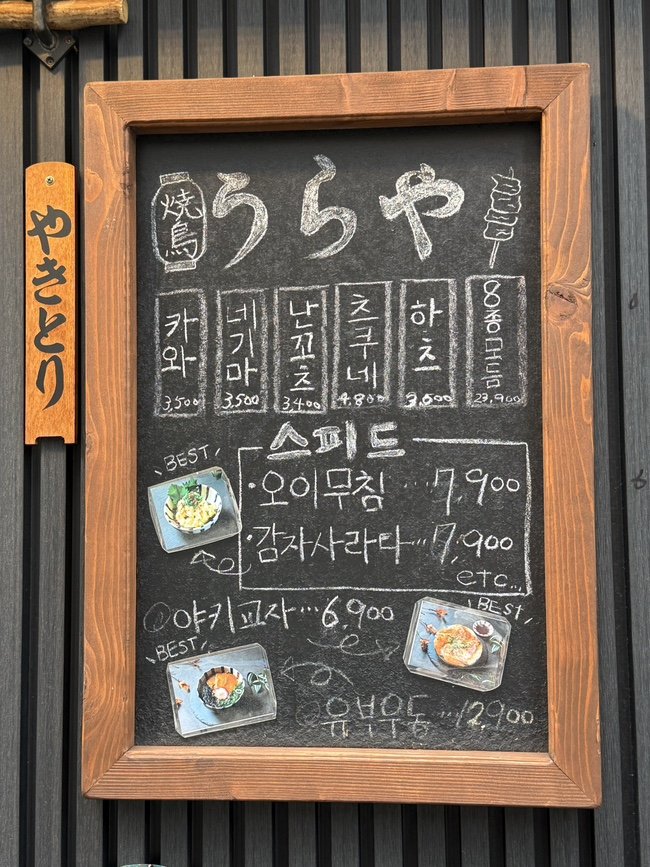 やきとり
焼鳥
うらや
카와
3,500
네기마
3,500
난꼬츠
3,400
츠쿠네
4,800
하츠
3,600
8종모듬
23,900
스피드
BEST
·오이무침 ... 7,900
·감자사라다...7,900
etc...
야키교자...6,900
BEST
BEST
유부우동...12,900